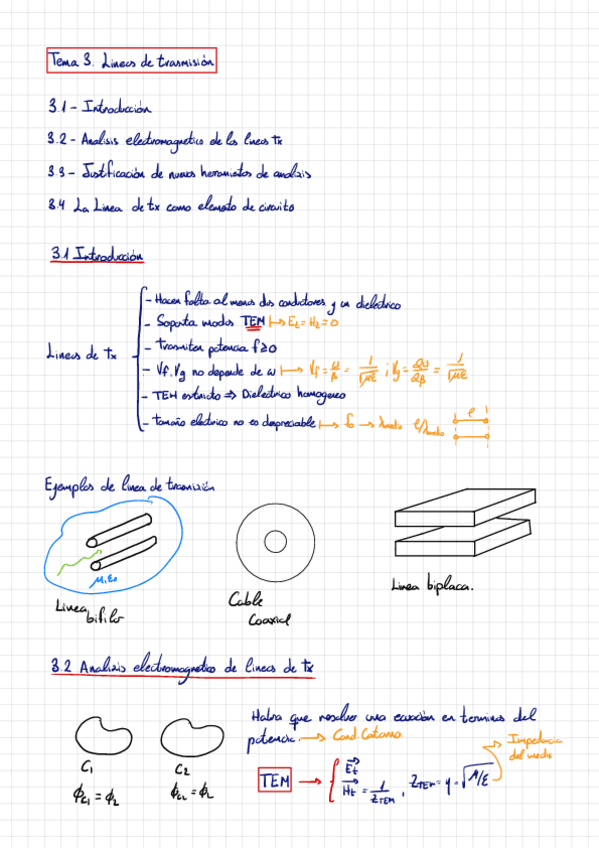 Tema 3. Lineas de trasmisión
3.1 - Introducción
3.2 - Analisis electromagnetico de las lineas tx
3.3 - Justificación de nuevas herramientas de analisis
3.4 La Linea de tx como elemento de circuito
3.1 Introducción
Lineas de tx
- Hacen falta al menos dos conductores y un dielectrico
- Soporta modos TEM ↦ Et = Ht = 0
- trasmiten potencia f≥0
- Vf, Vg no depende de ω ↦ Vf = ω/β = 1/√με ; Vg = ∂ω/∂β = 1/√με
- TEM estricto ⇒ Dielectrico homogeneo
- tamaño electrico no es despreciable ↦ fo → λmedio ℓ/λmedio ℓ
Ejemplos de linea de trasmisión
μ, εo
Linea bifilar
Cable Coaxial
Linea biplaca.
3.2 Analisis electromagnetico de lineas de tx
C1
C2
Habra que resolver una ecuación en terminos del
potencial. → Cond. Contorno
TEM → { Et Ht = 1/ZTEM , ZTEM = η = √μ/ε
Impedancia del medio